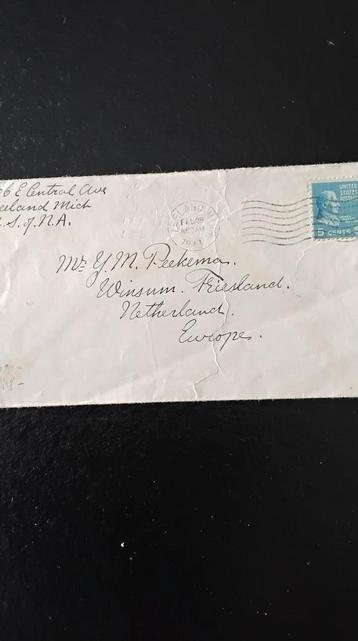 6 E Central Ave
Zeeland Mich
U.S. of N.A.
ZEELAND
FEB
AM
UNITED
STATES
5 CENTS
Mr. Y. M. Peekema.
Winsum, Friesland.
Netherland.
Europe.